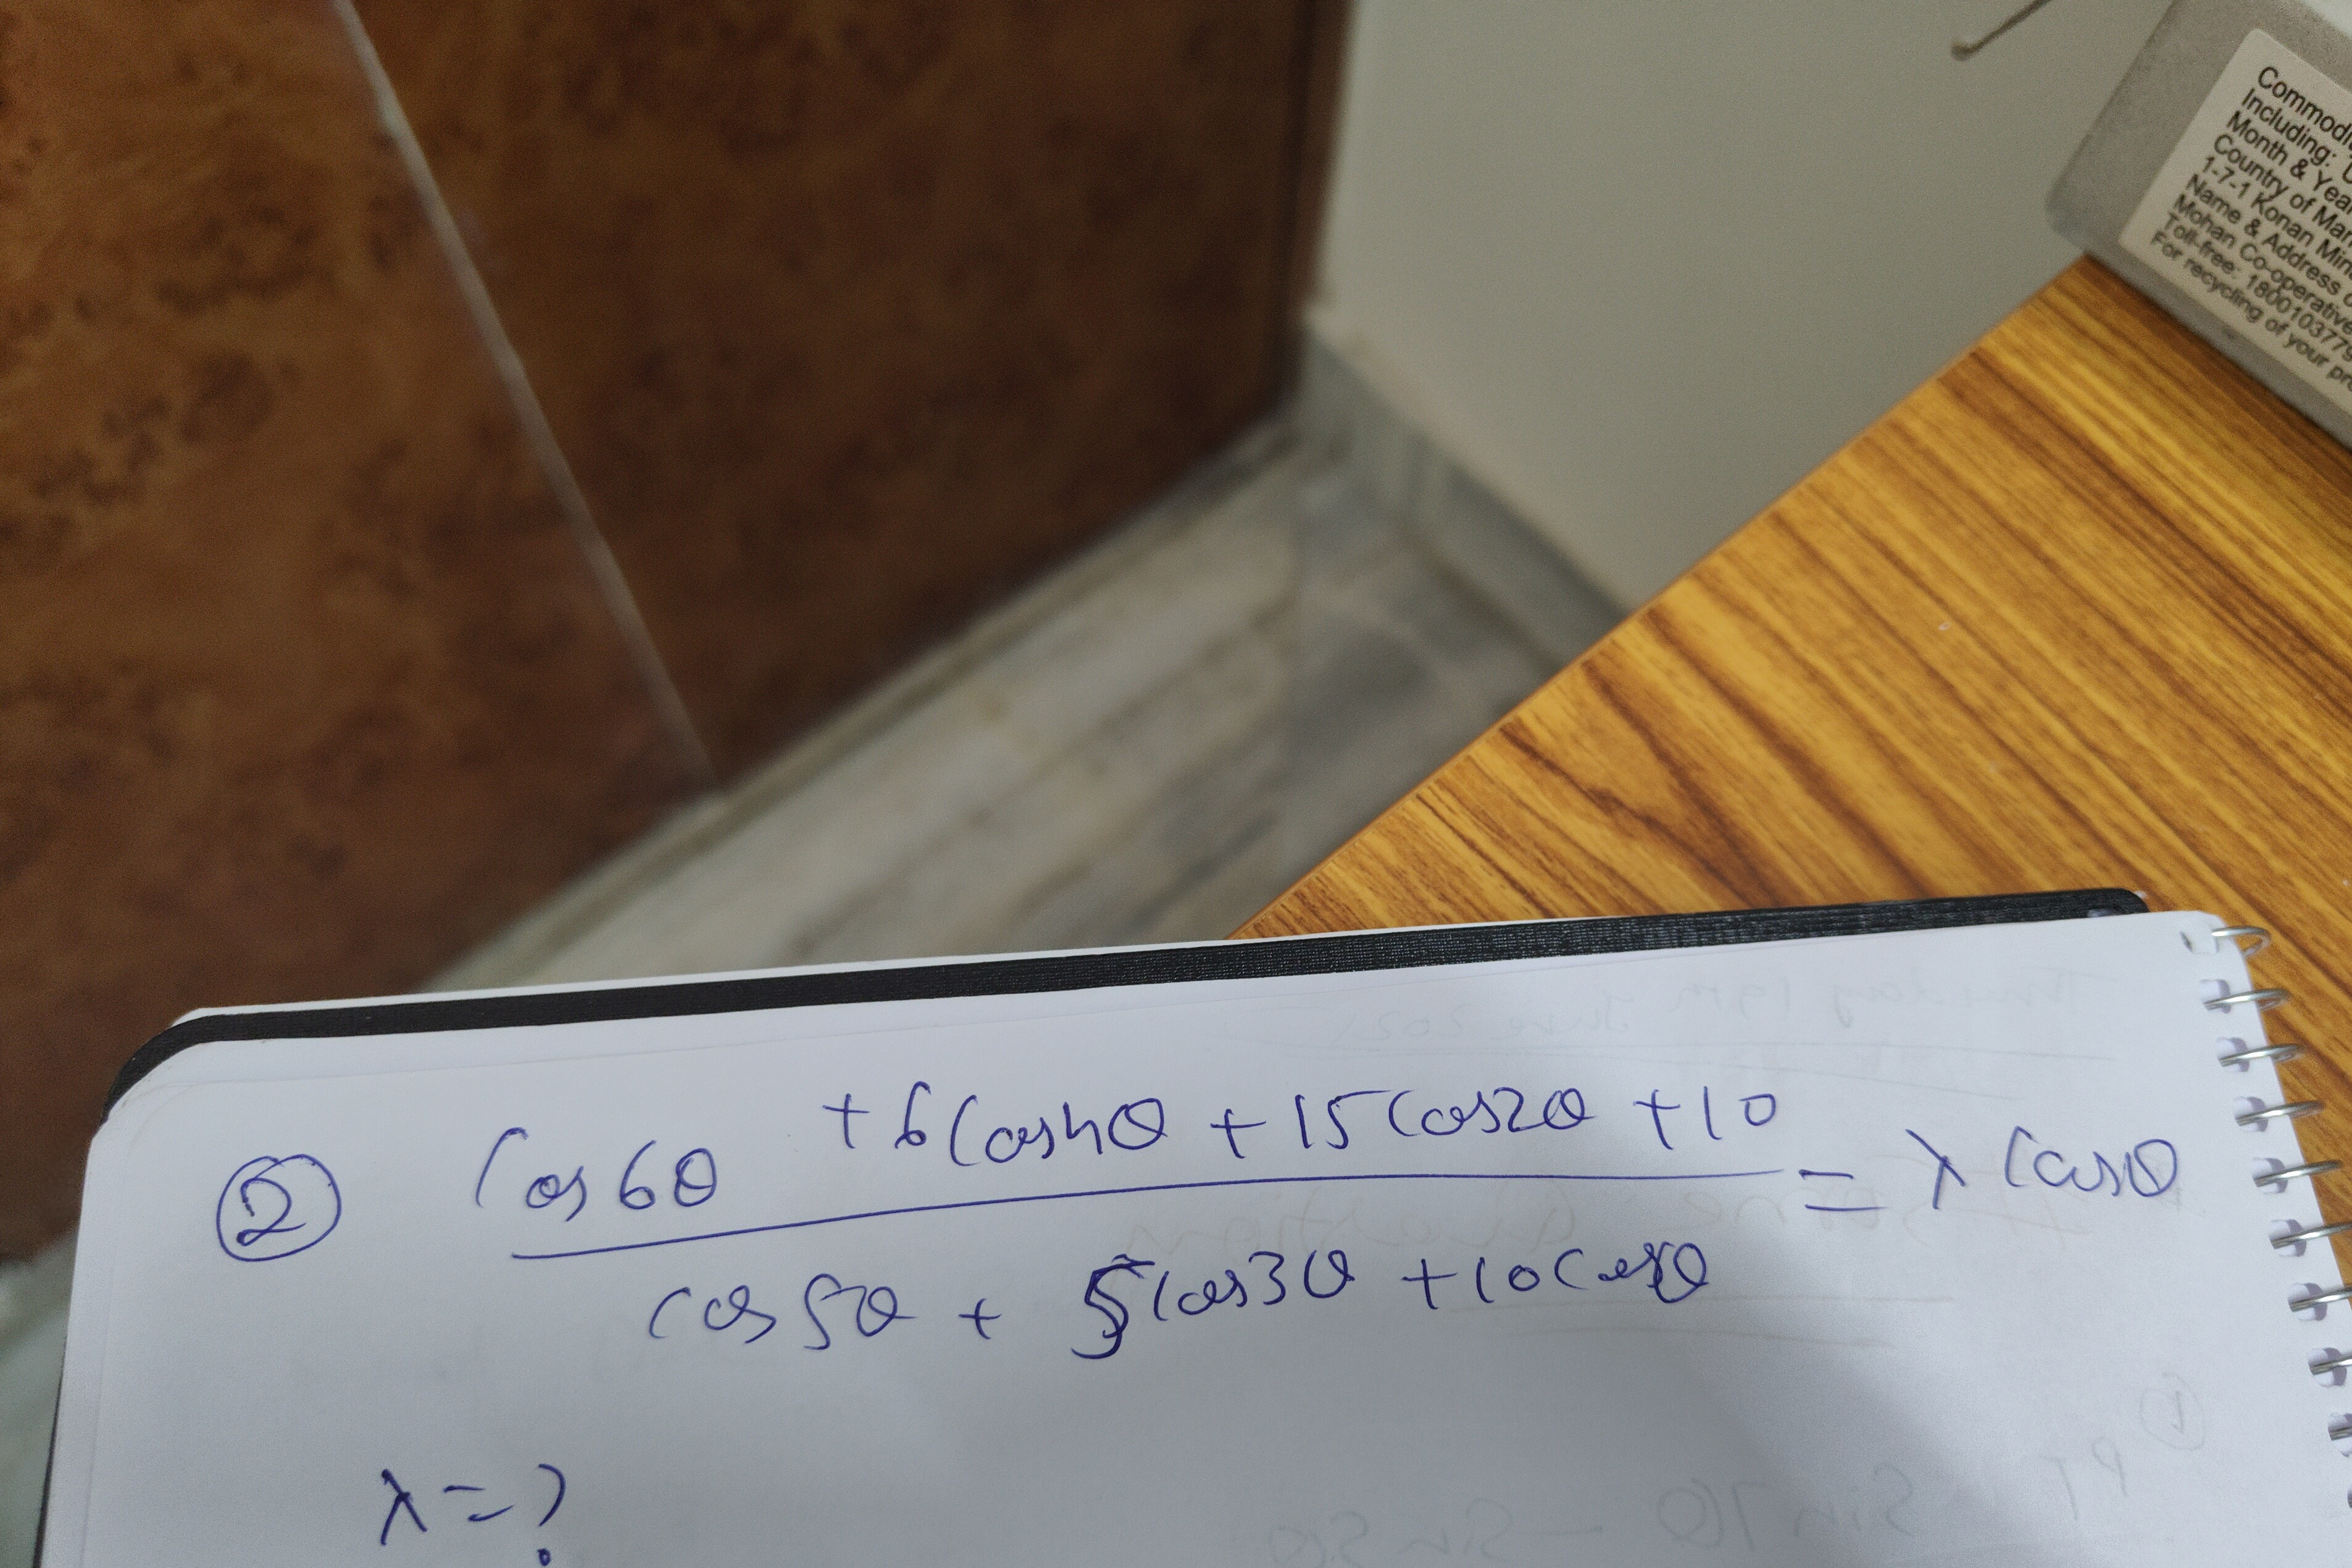 Commodi
Including:
Month & Year
Country of Man
1-7-1 Konan Min
Name & Address
Mohan Co-operative
Toll-free:
For recycling of your pr
② Cos6θ + 6Cos4θ + 15Cos2θ + 10 = λ Cosθ
cos5θ + 5Cos3θ + 10Cosθ
λ = ?